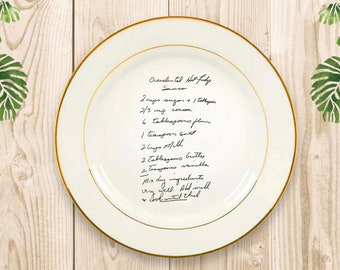 Occidental Hot Fudge
Sauce
2 cups sugar + 1 tablespoon
2/3 cup cocoa
6 tablespoons flour
1 teaspoon salt
2 cups Milk
2 tablespoons butter
2 teaspoons vanilla
Mix dry ingredients
very well Add milk
& Cook until thick